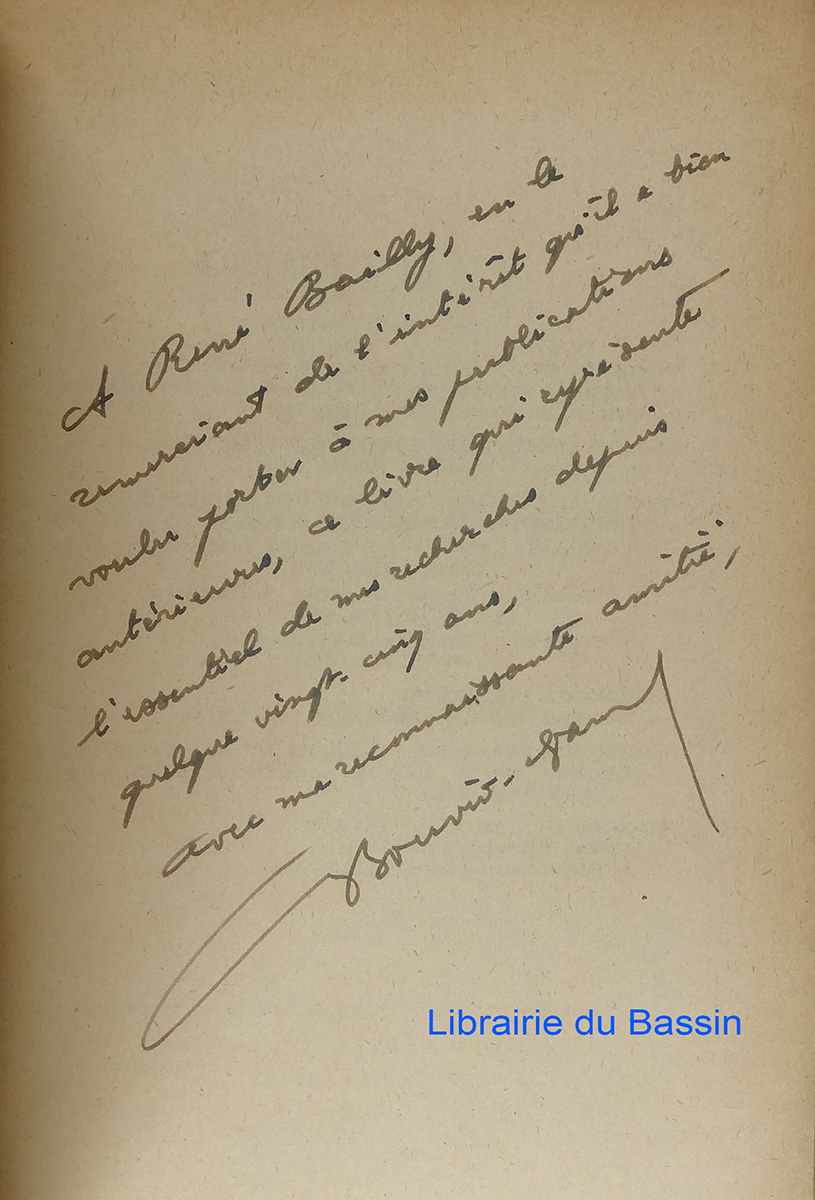 A René Bailly, en le
remerciant de l'intérêt qu'il a bien
voulu porter à mes publications
antérieures, ce livre qui représente
l'essentiel de mes recherches depuis
quelque vingt-cinq ans,
avec ma reconnaissante amitié,
Bouvi
Librairie du Bassin